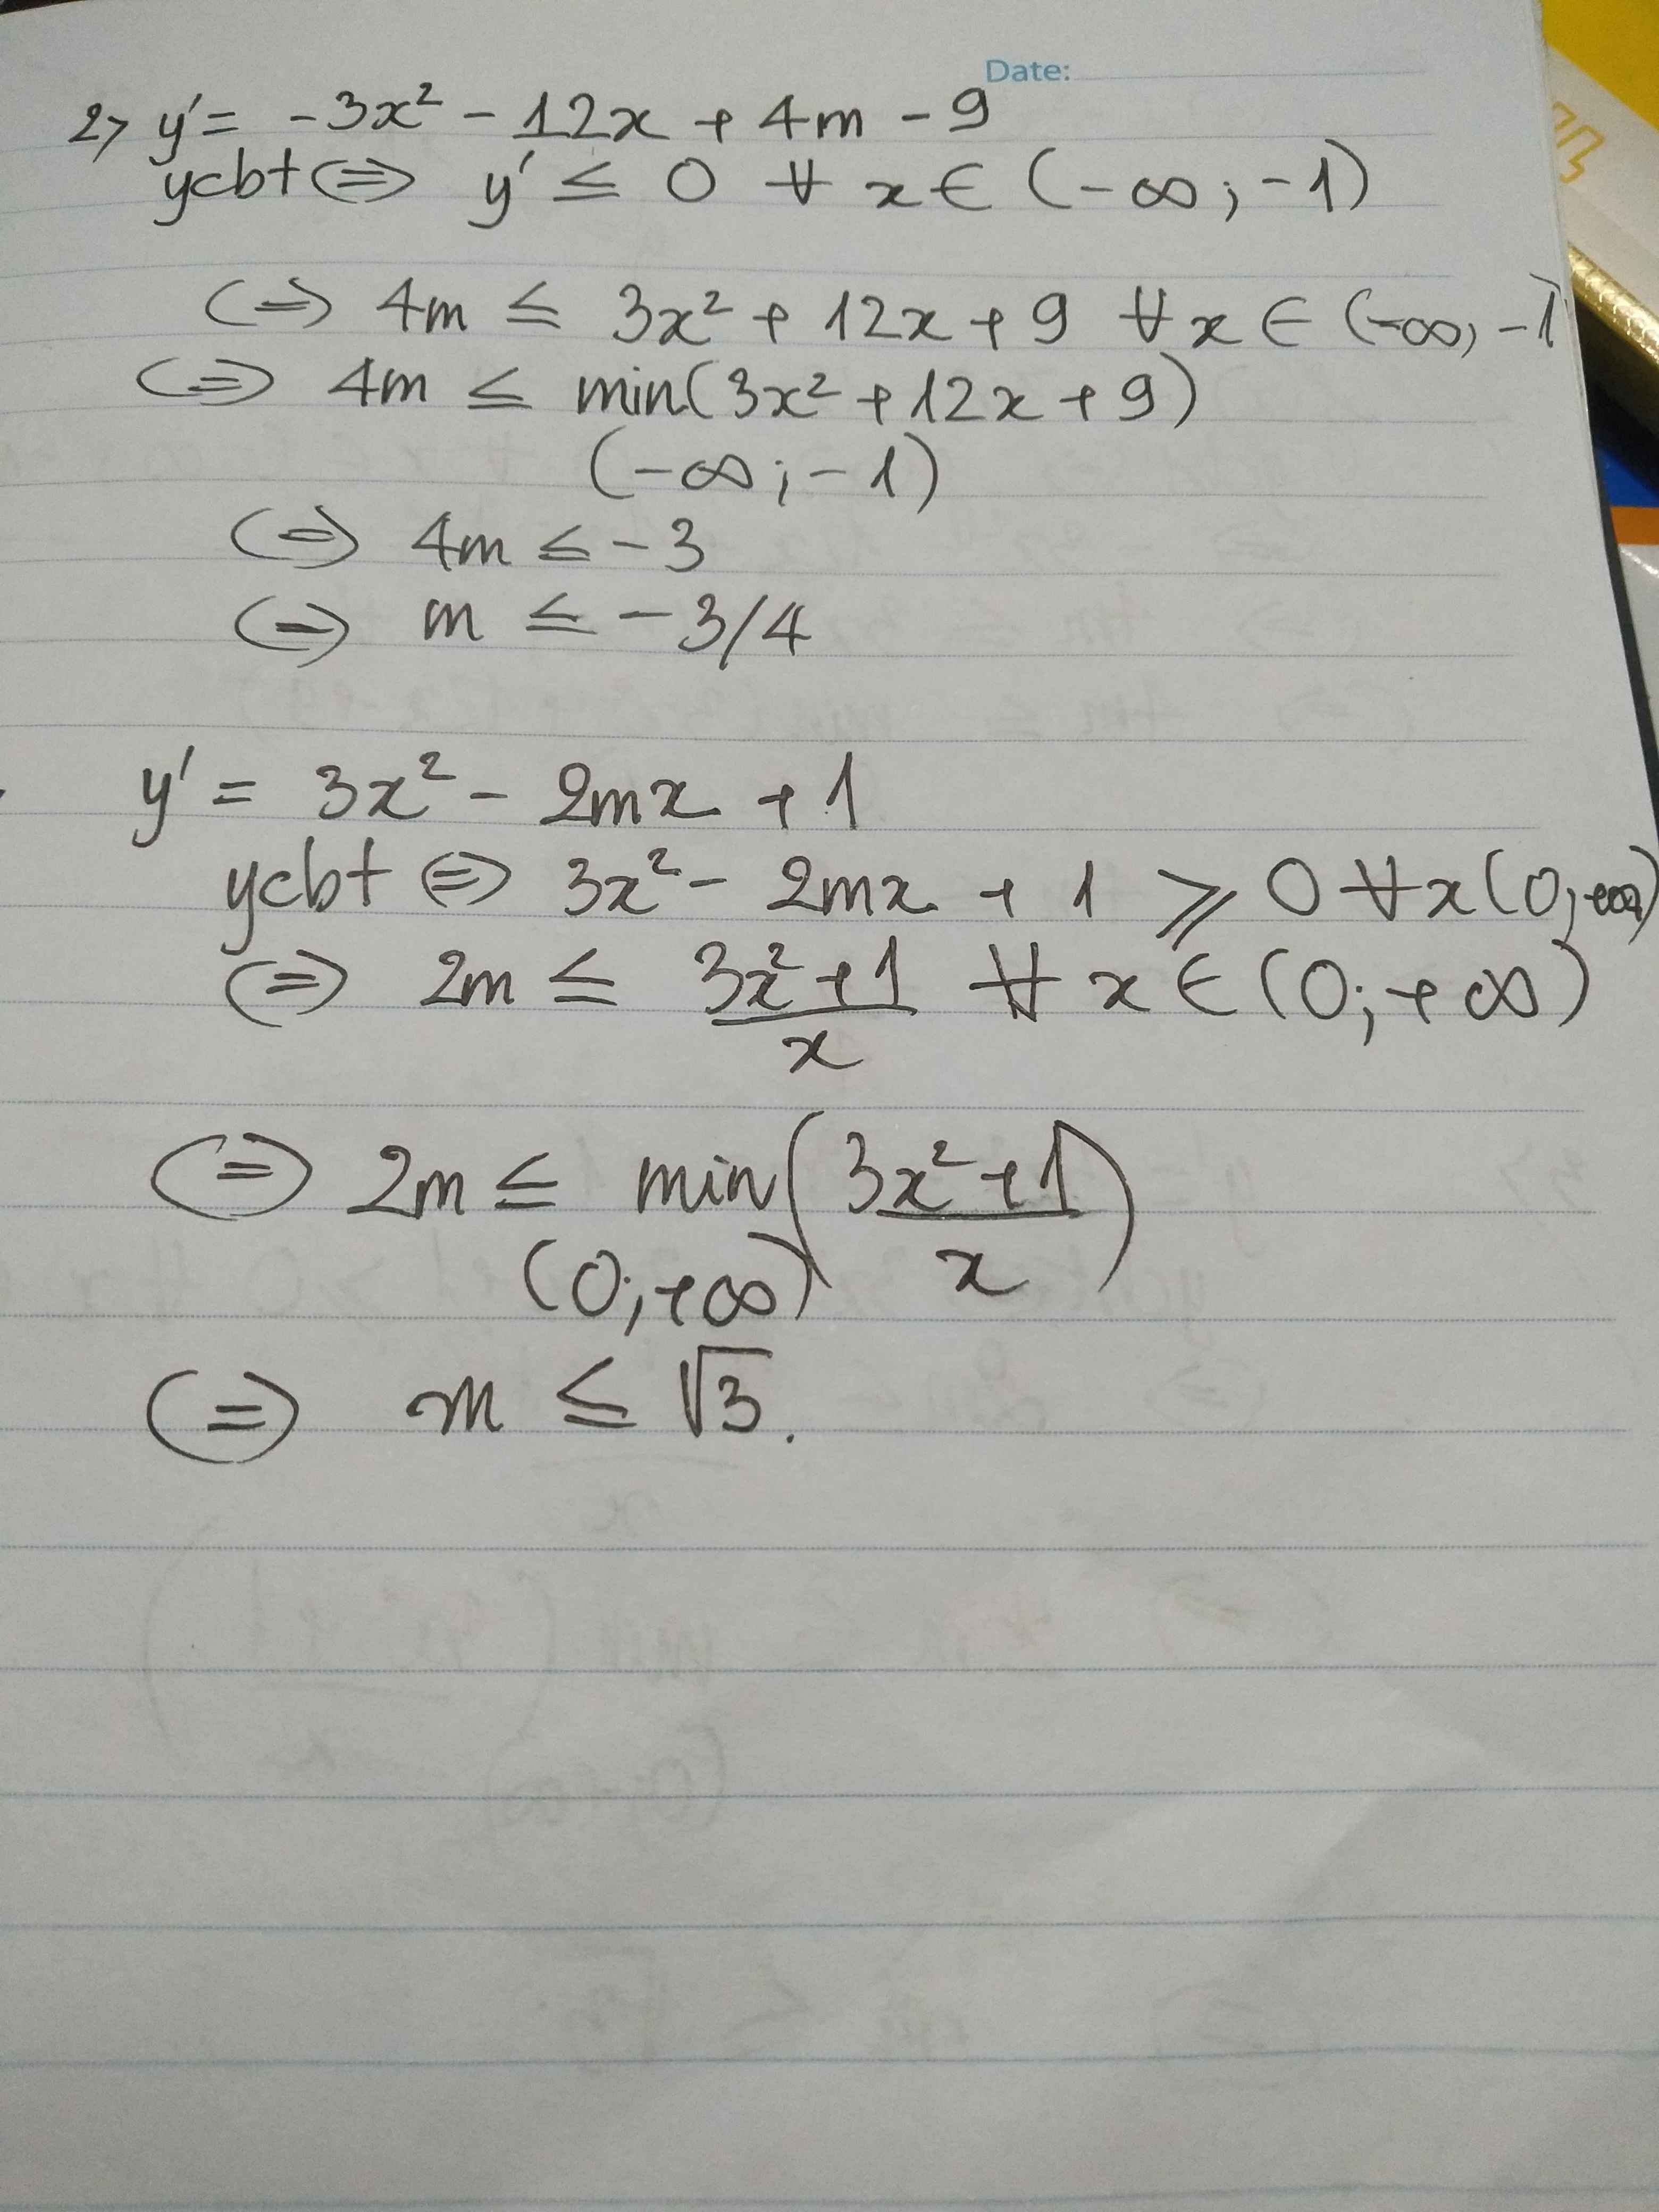 Date:
2, y' = -3x² - 12x + 4m - 9
ycbt <=> y' ≤ 0 ∀ x ∈ (-∞; -1)
<=> 4m ≤ 3x² + 12x + 9 ∀x ∈ (-∞, -1
<=> 4m ≤ min(3x² + 12x + 9)
(-∞; -1)
<=> 4m ≤ -3
<=> m ≤ -3/4
y' = 3x² - 2mx + 1
ycbt <=> 3x² - 2mx + 1 ≥ 0 ∀x(0; +∞)
<=> 2m ≤ (3x² + 1)/x ∀ x ∈ (0; +∞)
<=> 2m ≤ min((3x² + 1)/x)
(0; +∞)
<=> m ≤ √3.